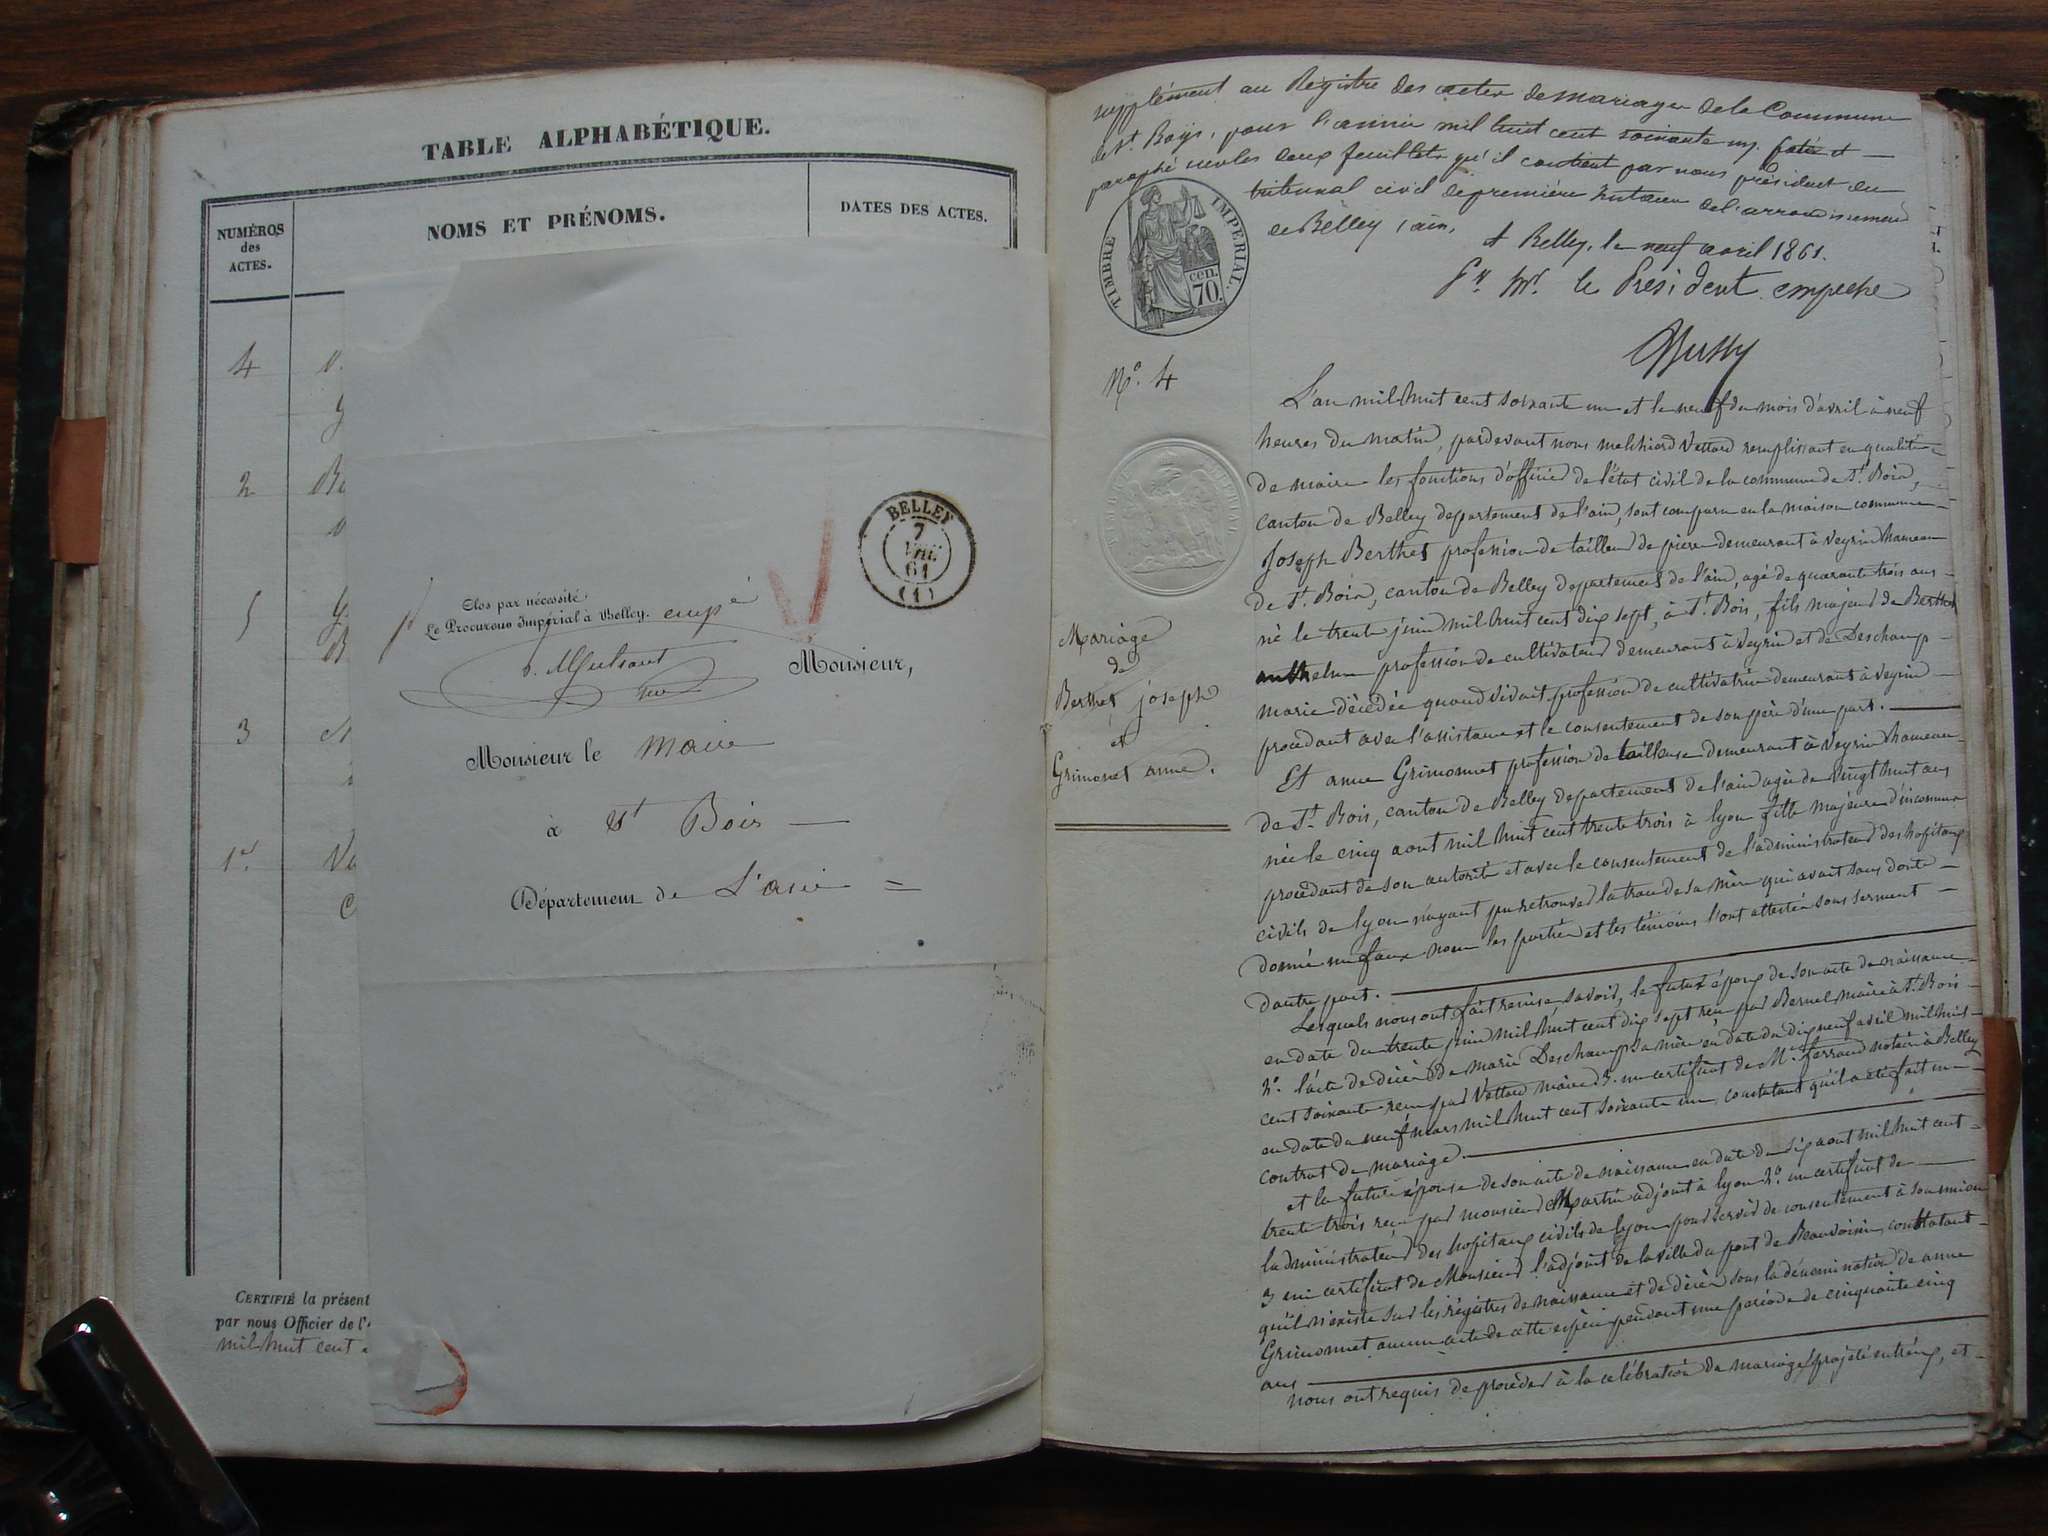 TABLE ALPHABÉTIQUE.
NUMÉROS
des
ACTES.
NOMS ET PRÉNOMS.
DATES DES ACTES.
4
2
5
3
1er.
BELLEY
7
61
(1)
Clos par nécessité.
Le Procureur Impérial à Belley. empé
Monsieur,
Monsieur le Maire
à St Bois
Département de L'ain =
CERTIFIÉ la présent
par nous Officier de l'
mil huit cent
supplément au Régistre des actes de mariages de la Commune
de St. Boys, pour l'année mil huit cent soixante un, coté et
paraphé sur les deux feuillets qu'il contient par nous président du
tribunal civil de première instance de l'arrondissement
de Belley, ain,
A Belley, le neuf avril 1861.
Pr. Mr. le Président empeché
TIMBRE IMPERIAL.
cen.
70.
N°. 4
L'an mil huit cent soixante un et le neuf du mois d'avril à neuf
heures du matin, pardevant nous melchiord Vettard remplissant en qualité
de maire les fonctions d'officier de l'état civil de la commune de St. Bois,
canton de Belley departement de l'ain, sont comparu en la maison commune
Joseph Berthet profession de tailleur de pierre demeurant à Veyrin hameau
de St. Bois, canton de Belley departement de l'ain, agé de quarante trois ans
né le trente juin mil huit cent dix sept, à St. Bois, fils majeur de Berthet
anthelme profession de cultivateur demeurant à Veyrin et de Deschamp
marie décédée quand vivait profession de cultivatrice demeurant à Veyrin
procedant avec l'assistance et le consentement de son père d'une part.
Mariage
de
Berthet joseph
et
Grimonet anne.
Et anne Grimonnet profession de tailleuse demeurant à Veyrin hameau
de St. Bois, canton de Belley departement de l'ain agée de vingt huit ans
née le cinq aout mil huit cent trente trois à lyon fille majeure d'inconnu
procedant de son autorité et avec le consentement de l'administrateur des hopitaux
civils de lyon n'ayant pu retrouver la trace de sa mère qui avait sans doute
donné un faux nom les parties et les témoins l'ont attesté sous serment
d'autre part.
Lesquels nous ont fait remise savoir, le futur époux de son acte de naissance
en date du trente juin mil huit cent dix sept reçu par Bernel maire à St. Bois
2°. l'acte de décès de marie Deschamp sa mère en date du dix neuf avril mil huit
cent soixante reçu par Vettard maire 3°. un certificat de Me. ferrand notaire à Belley
en date du neuf mars mil huit cent soixante un, constatant qu'il a été fait un
contrat de mariage.
et la future épouse de son acte de naissance en date du six aout mil huit cent
trente trois reçu par monsieur Martin adjoint à lyon 2°. un certificat de
l'administrateur des hopitaux civils de lyon pour servir de consentement à son union
3 un certificat de Monsieur l'adjoint de la ville du pont de Beauvoisin constatant
qu'il n'existe sur les régistres de naissance et de décès sous la dénomination de anne
Grimonnet aucun acte de cette espèce pendant une période de cinquante cinq
ans
nous ont requis de procéder à la célébration du mariage projeté entr'eux, et